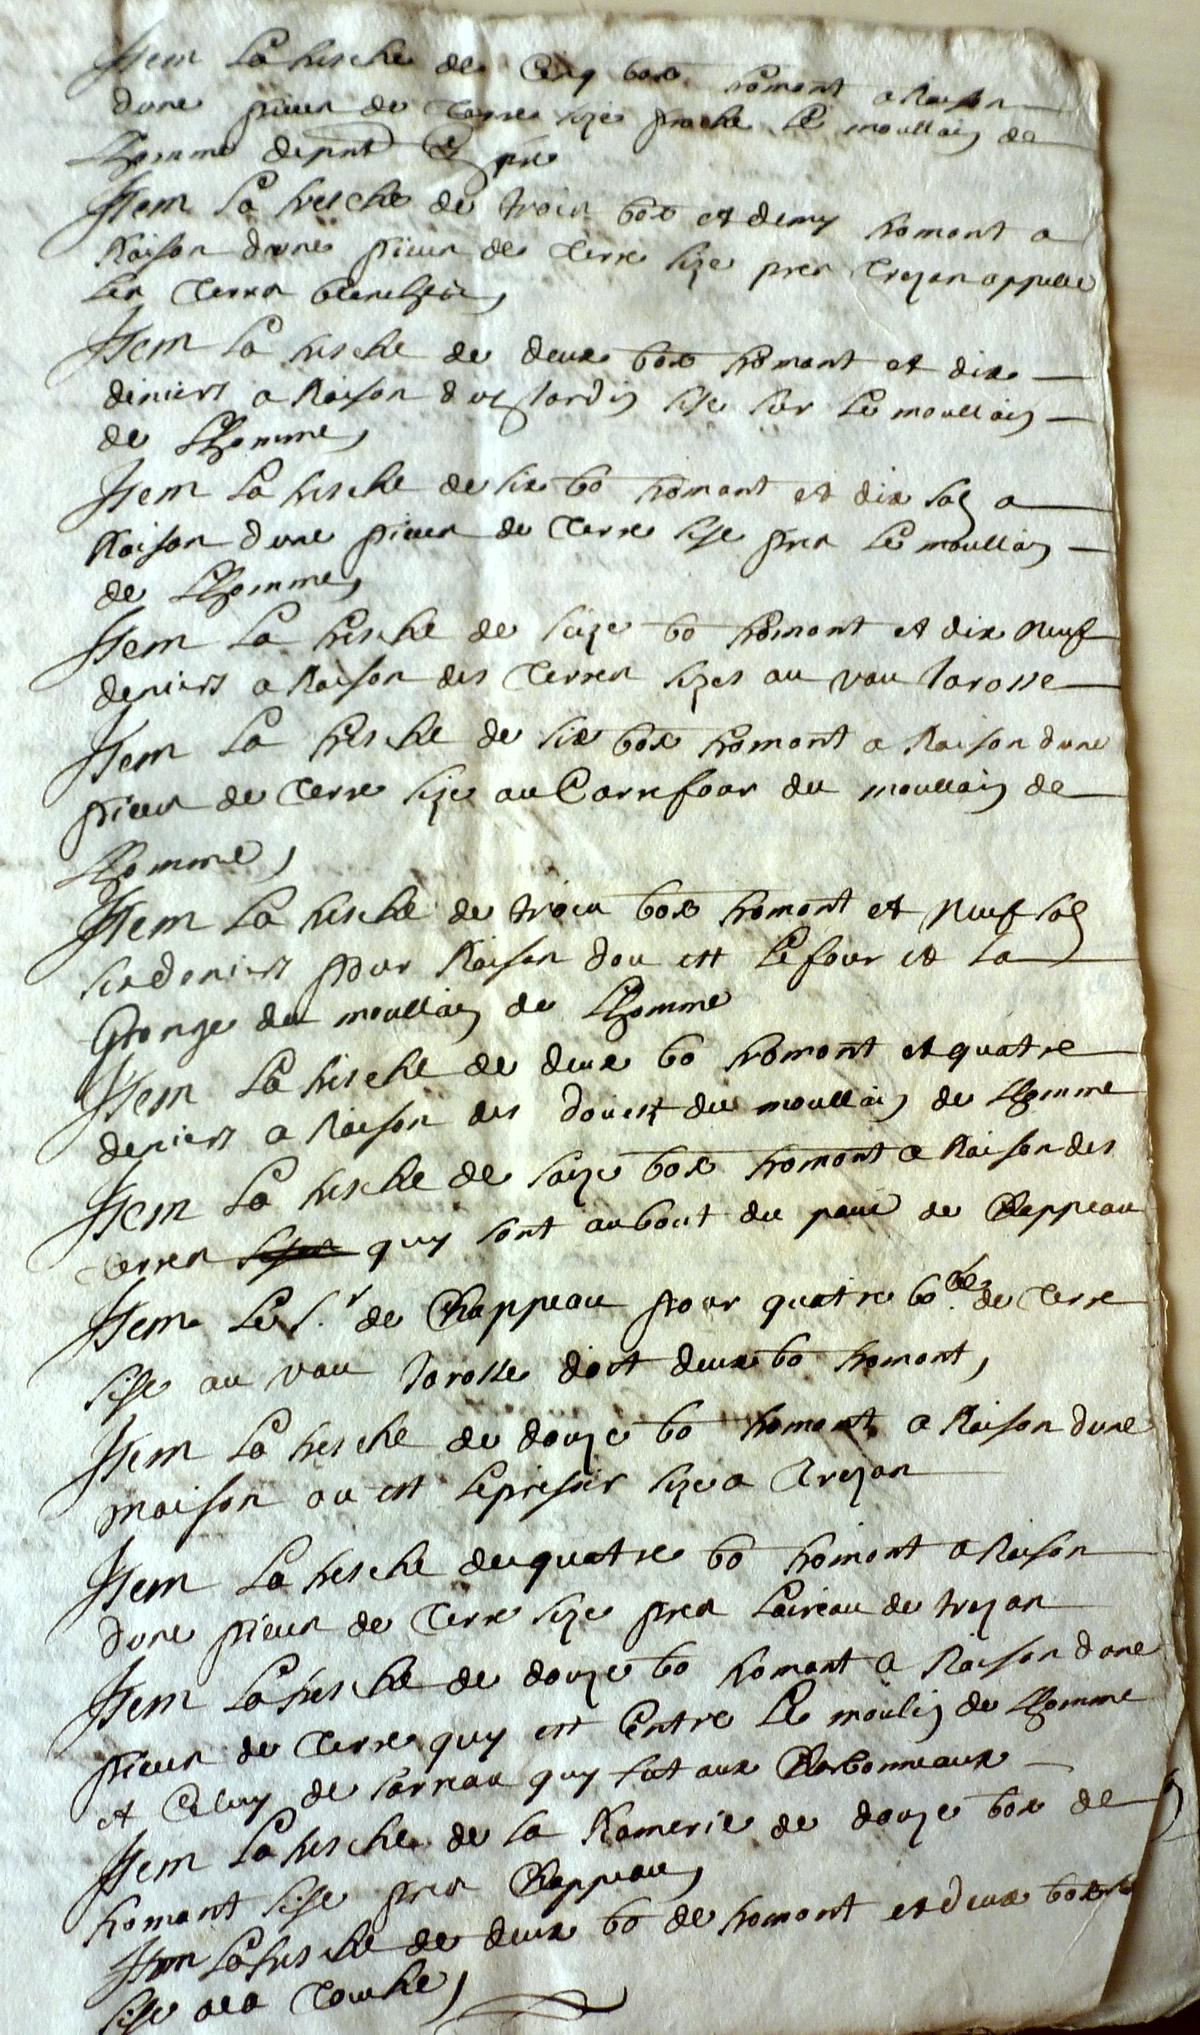 Item La fresche de Cinq box froment a Raison
dune pieces de Terre size proche Le moullain de
Lhomme
Item La fresche de trois box et demy froment a
Raison dune pieces de Terre size pres Trezan appelle
Les Terres
Item La fresche de deux box froment et dix
deniers a Raison dun Jardin sise sur Le moullain
de Lhomme,
Item La fresche de six bo froment et dix sols a
Raison dune pieces de Terre sise pres Le moullain
de Lhomme,
Item La fresche de saize bo froment et dix neuf
deniers a Raison des Terres sizes au vau Jarosse
Item La fresche de six box froment a Raison dune
pieces de Terre size au Carrefour du moullain de
Lhomme,
Item La fresche de trois box froment et Neuf sols
six deniers pour Raison dou est Le four et La
Grange du moullain de Lhomme
Item La fresche de deux bo froment et quatre
deniers a Raison des douest du moullain de Lhomme
Item La fresche de saize box froment a Raison des
Terres quy sont au bout du pavé de Chappeau
Item Le S.r de Chappeau pour quatre bo.lées de Terre
sise au vau Jarosse doit deux bo froment,
Item La fresche de douze bo froment a Raison dune
maison ou est Le presoir size a Trezan
Item La fresche de quatre bo froment a Raison
dune pieces de Terre size pres Laireau de trezan
Item La fresche de douze bo froment a Raison dune
pieces de Terre quy est Entre Le moulin de Lhomme
et Celuy de Sarreau quy fut aux Charbonneaux
Item La fresche de La Ramerie de douze box de
froment sise pres Chappeau,
Item La fresche de deux bo de froment et deux box
sise a La Touche,